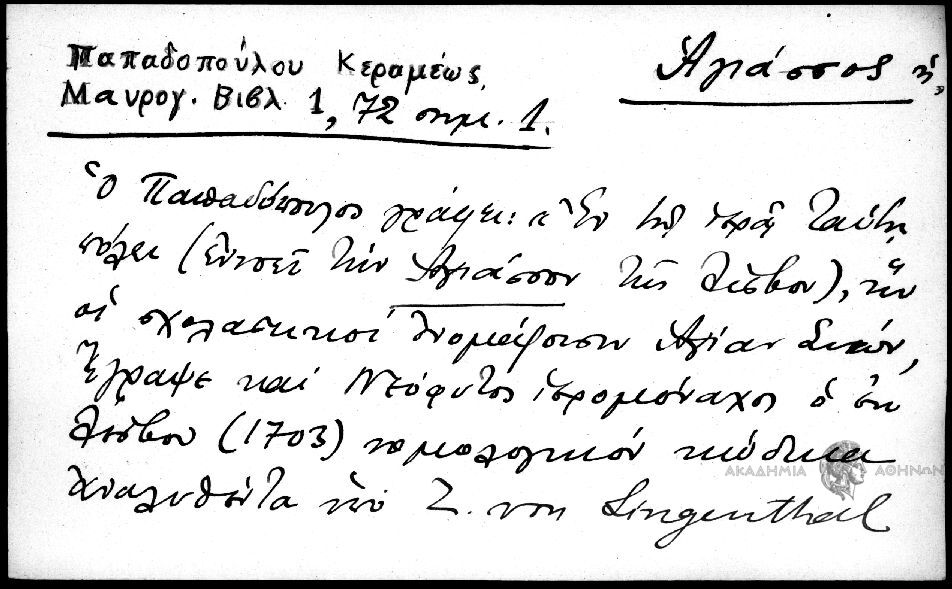 Παπαδοπούλου Κεραμέως,
Μαυρογ. Βιβλ. 1, 72 σημ. 1.
Ἁγιάσσος ἡ,
Ὁ Παπαδόπουλος γράφει: «Ἐν τῇ ἱερᾷ ταύτῃ
πόλει (ἐννοεῖ τὴν Ἁγιάσσον τῆς Λέσβου), ἣν
οἱ σχολαστικοὶ ὀνομάζουσιν Ἁγίαν Σιών,
ἔγραψε καὶ Νεόφυτος ἱερομόναχος ὁ ἐκ
Λέσβου (1703) νομολογικὸν κώδικα
ἀναλυθέντα ὑπὸ Ζ. von Lingenthal
ΑΚΑΔΗΜΙΑ ΑΘΗΝΩΝ